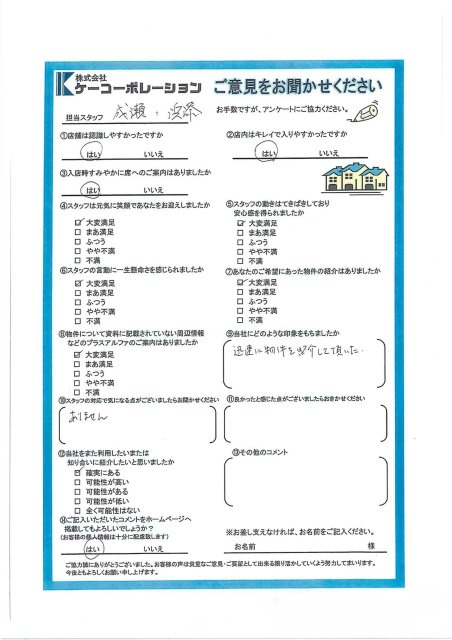 株式会社
ケーコーポレーション
ご意見をお聞かせください
担当スタッフ 成瀬・浜添
お手数ですが、アンケートにご協力ください。
①店舗は認識しやすかったですか
はい いいえ
②店内はキレイで入りやすかったですか
はい いいえ
③入店時すみやかに席へのご案内はありましたか
はい いいえ
④スタッフは元気に笑顔であなたをお迎えしましたか
☑ 大変満足
□ まあ満足
□ ふつう
□ やや不満
□ 不満
⑤スタッフの動きはてきぱきしており
安心感を得られましたか
☑ 大変満足
□ まあ満足
□ ふつう
□ やや不満
□ 不満
⑥スタッフの言動に一生懸命さを感じられましたか
☑ 大変満足
□ まあ満足
□ ふつう
□ やや不満
□ 不満
⑦あなたのご希望にあった物件の紹介はありましたか
☑ 大変満足
□ まあ満足
□ ふつう
□ やや不満
□ 不満
⑧物件について資料に記載されていない周辺情報
などのプラスアルファのご案内はありましたか
☑ 大変満足
□ まあ満足
□ ふつう
□ やや不満
□ 不満
⑨当社にどのような印象をもちましたか
迅速に物件を紹介して頂いた.
⑩スタッフの対応で気になる点がございましたらお聞かせください
ありません
⑪良かったと感じた点がございましたらお聞かせください
⑫当社をまた利用したいまたは
知り合いに紹介したいと思いましたか
☑ 確実にある
□ 可能性が高い
□ 可能性がある
□ 可能性が低い
□ 全く可能性はない
⑬その他のコメント
⑭ご記入いただいたコメントをホームページへ
掲載してもよろしいでしょうか?
(お客様の個人情報は十分に配慮致します)
はい いいえ
※お差し支えなければ、お名前をご記入ください。
お名前 様
ご協力誠にありがとうございました。お客様の声は貴重なご意見・ご要望として出来る限り活かしていくよう努力してまいります。
今後ともよろしくお願い申し上げます。